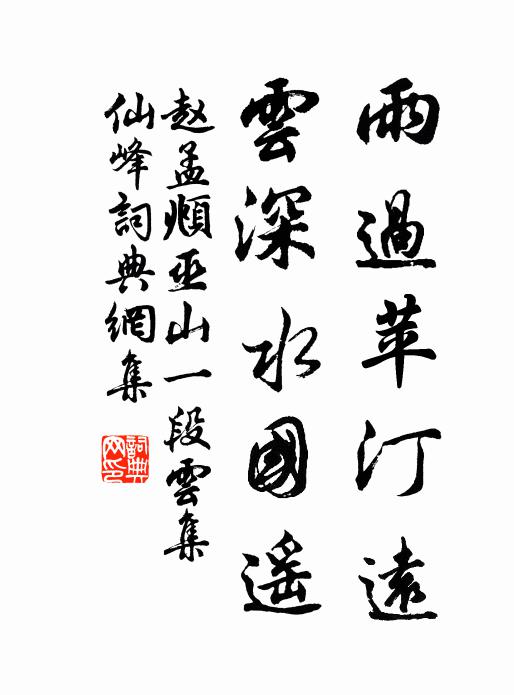 雨過苹汀遠
雲深水國遙
赵孟頫巫山一段雲集
仙峰詞典網集
詞典
网印